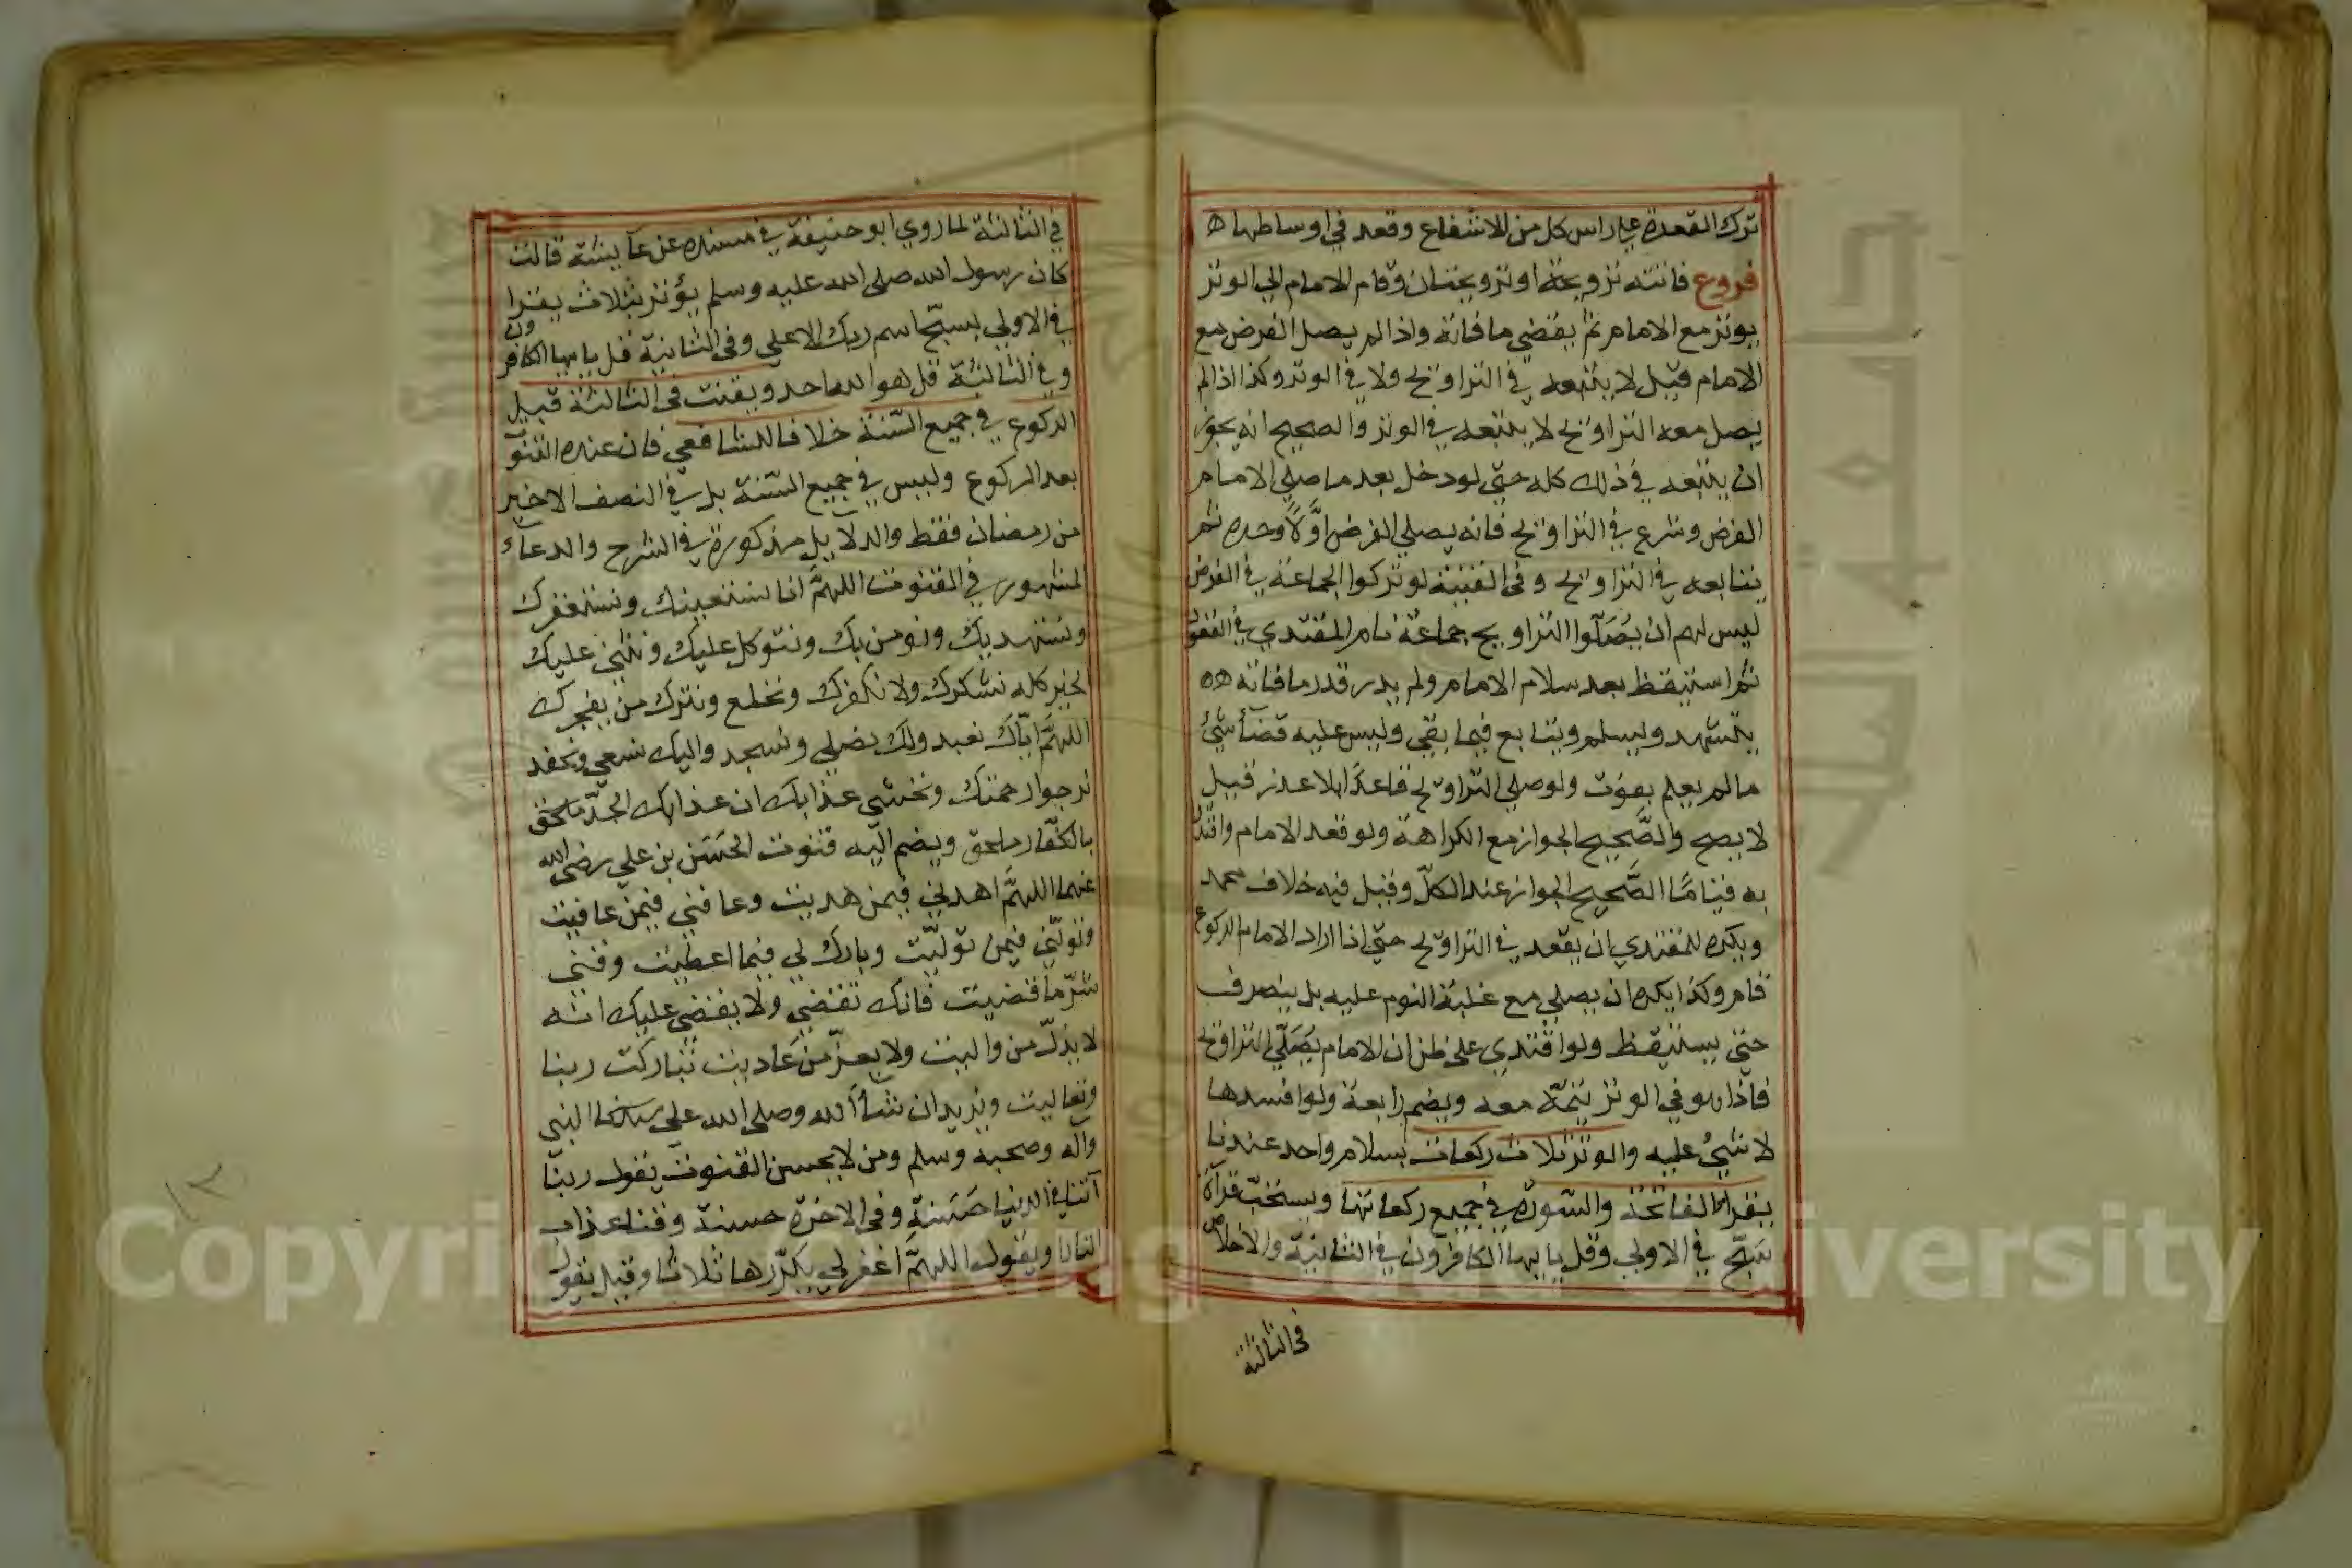 ترك القعدة علي راس كل من الاشفاع وقعد في اوساطها ه
فروع فاتته ترويحة او ترويحتان وقام الامام الي الوتر
يوتر مع الامام ثم يقضي ما فاته واذا لم يصل الفرض مع
الامام قيل لا يتبعه في التراويح ولا في الوتر وكذا اذا لم
يصل معه التراويح لا يتبعه في الوتر والصحيح انه يجوز
ان يتبعه في ذلك كله حتي لو دخل بعد ما صلي الامام
الفرض وشرع في التراويح فانه يصلي الفرض اوّلاً وحده ثم
يتابعه في التراويح وفي القنية لو تركوا الجماعة في الفرض
ليس لهم ان يصَلّوا التراويح جماعة نام المقتدي في القعو
ثم استيقظ بعد سلام الامام ولم يدر قدر ما فاته هه
يتشهد ويسلم ويتابع فيما بقي وليس عليه قضآ شيءُ
ما لم يعلم بفوت ولو صلي التراويح قاعدًا بلا عذر قيل
لا يصح والصَّحيح الجواز مع الكراهة ولو قعد الامام واقتدا
به قيامًا الصَّحيح الجواز عند الكلّ وقيل فيه خلاف محمد
ويكره للمقتدي ان يقعد في التراويح حتي اذا اراد الامام الركوع
قام وكذا يكره ان يصلي مع غلبة النوم عليه بل ينصرف
حتي يستيقظ ولو اقتدي على ظن ان الامام يُصَلّي التراويح
فاذا هو في الوتر يتمّه معه ويضم رابعة ولو افسدها
لا شيُ عليه والوتر ثلاث ركعات بسلام واحد عندنا
يقرا الفاتحة والسّورة في جميع ركعاتها ويستحبّ قرآة
سَبّح في الاولي وقل يا يها الكافرون في الثانية والاخلاص
في الثالثة
في الثالثة لما روي ابو حنيفة في مسنده عن عآيشة قالت
كان رسول الله صلى الله عليه وسلم يؤتر بثلاث يقرا
في الاولي بسبّح اسم ربك الاعلي وفي الثانية قل يا يها الكافرون
وفي الثالثة قل هو الله احد ويقنت في الثالثة قبيل
الركوع في جميع السّنة خلافا للشافعي فان عنده القنوت
بعد الركوع وليس في جميع السّنة بل في النصف الاخير
من رمضان فقط والدلايل مذكورة في الشرح والدعآء
المشهور في القنوت اللهمَّ انا نستعينك ونستغفرك
ونستهديك ونومن بك ونتوكل عليك ونثني عليك
الخير كله نشكرك ولا نكفرك ونخلع ونترك من يفجرك
اللهمَّ ايّاك نعبد ولك نصلي ونسجد واليك نسعي ونحفد
نرجوا رحمتك ونخشي عذابك ان عذابك الجدّ ملحق
بالكفّار ملحق ويضم اليه قنوت الحَسَن بن علي رضي الله
عنهما اللهمَّ اهدني فيمن هديت وعافني فيمن عافيت
وتولّني فيمن تولّيت وبارك لي فيما اعطيت وقني
شرّ ما قضيت فانك تقضي ولا يقضي عليك انه
لا يذلّ من واليت ولا يعزّ من عَاديت تباركت ربنا
وتعاليت ويزيد ان شآ الله وصلى الله على سيدنا النبي
وآله وصحبه وسلم ومن لا يحسن القنوت يقول ربنا
آتنا في الدنيا حَسَنةِ وفي الاخرة حسنة وقنا عذاب
النار او يقول اللهمَّ اغفر لي يكرّرها ثلاثا وقيل يقول
Copyright © King Saud University